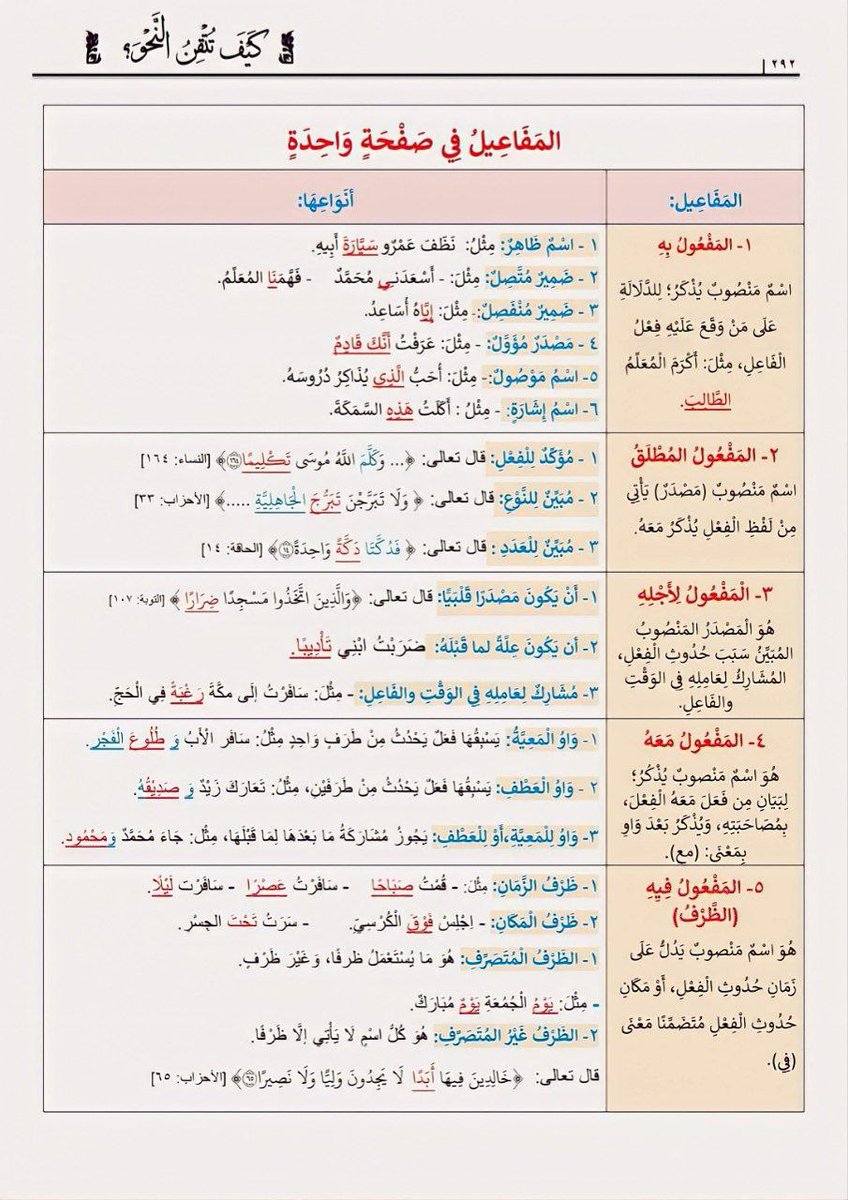 كَيْفَ تُتْقِنُ النَّحْوَ؟
٢٩٢ |
المَفَاعِيلُ فِي صَفْحَةٍ وَاحِدَةٍ
المَفَاعِيل:
أنْوَاعِهَا:
١- المَفْعُولُ بِهِ
اسْمٌ مَنْصُوبٌ يُذْكَرُ؛ لِلدَّلَالَةِ
عَلَى مَنْ وَقَعَ عَلَيْهِ فِعْلُ
الْفَاعِلِ، مِثْلَ: أَكْرَمَ الْمُعَلِّمُ
الطَّالِبَ.
١ - اسْمٌ ظَاهِرٌ: مِثْلُ: نَظَّفَ عَمْرُو سَيَّارَةَ أَبِيهِ.
٢ - ضَمِيرٌ مُتَّصِلٌ: مِثْلَ: - أَسْعَدَنِي مُحَمَّدٌ - فَهَّمَنَا المُعَلِّمُ.
٣ - ضَمِيرٌ مُنْفَصِلٌ:- مِثْلَ: إِيَّاهُ أُسَاعِدُ.
٤ - مَصْدَرٌ مُؤَوَّلٌ: - مِثْلَ: عَرَفْتُ أَنَّكَ قَادِمٌ
٥- اسْمُ مَوْصُولٌ:- مِثْلَ: أُحَبُّ الَّذِي يُذَاكِرُ دُرُوسَهُ.
٦- اسْمُ إِشَارَةٍ: - مِثْلُ : أَكَلْتُ هَذِهِ السَّمَكَةَ.
٢- المَفْعُولُ المُطْلَقُ
اسْمٌ مَنْصُوبٌ (مَصْدَرٌ) يَأْتِي
مِنْ لَفْظِ الْفِعْلِ يُذْكَرُ مَعَهُ.
١ - مُؤَكِّدٌ لِلْفِعْلِ: قال تعالى: ﴿... وَكَلَّمَ اللَّهُ مُوسَى تَكْلِيمًا ١٦٤﴾ [النساء: ١٦٤]
٢ - مُبَيِّنٌ لِلنَّوْعِ: قال تعالى: ﴿ وَلَا تَبَرَّجْنَ تَبَرُّجَ الْجَاهِلِيَّةِ .....﴾ [الأحزاب: ٣٣]
٣ - مُبَيِّنٌ لِلْعَدَدِ : قال تعالى: ﴿ فَدُكَّتَا دَكَّةً وَاحِدَةً ١٤﴾ [الحاقة: ١٤]
٣- الْمَفْعُولُ لِأَجْلِهِ
هُوَ الْمَصْدَرُ المَنْصُوبُ
المُبَيِّنُ سَبَبَ حُدُوثِ الْفِعْلِ،
المُشَارِكُ لِعَامِلِهِ فِي الْوَقْتِ
والفَاعِلِ.
١- أَنْ يَكُونَ مَصْدَرًا قَلْبَيًّا: قال تعالى: ﴿وَالَّذِينَ اتَّخَذُوا مَسْجِدًا ضِرَارًا ﴾ [التوبة: ١٠٧]
٢- أن يَكُونَ عِلَّةً لما قَبْلَهُ: ضَرَبْتُ ابْنِي تَأْدِيبًا.
٣- مُشَارِكٌ لِعَامِلِهِ فِي الْوَقْتِ والفَاعِلِ: - مِثْلَ: سَافَرْتُ إلَى مَكَّةَ رَغْبَةً فِي الْحَجِّ.
٤- المَفْعُولُ مَعَهُ
هُوَ اسْمٌ مَنْصوبٌ يُذْكُرُ؛
لِبَيَانِ مِن فَعَلَ مَعَهُ الْفِعْلَ،
بِمُصَاحَبَتِهِ، وَيُذْكَرُ بَعْدَ وَاوٍ
بِمَعْنَى: (مع).
١- وَاوُ الْمَعِيَّةُ: يَسْبِقُهَا فَعَلٌ يَحْدُثُ مِنْ طَرَفٍ وَاحِدٍ مِثْلُ: سَافَر الْأَبُ وَ طُلُوعَ الْفَجْرِ.
٢ - وَاوُ الْعَطْفِ: يَسْبِقُهَا فَعَلٌ يَحْدُثُ مِنْ طَرَفَيْنِ، مِثْلُ: تَعَارَكَ زَيْدٌ وَ صَدِيْقُهُ.
٣- وَاوُ لِلْمَعِيَّةِ،أَوْ لِلْعَطْفِ: يَجُوزُ مُشَارَكَةُ مَا بَعْدَهَا لِمَا قَبْلَهَا، مِثْلُ: جَاءَ مُحَمَّدٌ وَمَحْمُود.
٥- المَفْعُولُ فِيهِ
(الظَّرْفُ)
هُوَ اسْمٌ مَنْصوبٌ يَدُلُّ عَلَى
زَمَانِ حُدُوثِ الْفِعْلِ، أَوْ مَكَانِ
حُدُوثِ الْفِعْلِ مُتَضَمِّنًا مَعْنَى
(فِي).
١- ظَرْفُ الزَّمَانِ: مِثْلَ: - قُمْتُ صَبَاحًا - سَافَرْتُ عَصْرًا - سَافَرْت لَيْلًا.
٢- ظَرْفُ الْمَكَانِ: - اِجْلِسْ فَوْقَ الْكُرْسِيِّ. - سَرَتُ تَحْتَ الجِسْرِ.
١- الظَرْفُ الْمُتَصَرِّفِ: هُوَ مَا يُسْتَعْمَلُ ظرفًا، وَغَيْرَ ظَرْفٍ.
- مِثْلَ: يَوْمُ الْجُمُعَةِ يَوْمٌ مُبَارَكٌ.
٢- الظَرْفُ غَيْرُ المُتَصَرِّفِ: هُوَ كُلُّ اسْمٍ لَا يَأْتِي إلَّا ظَرْفًا.
قال تعالى: ﴿خَالِدِينَ فِيهَا أَبَدًا لَا يَجِدُونَ وَلِيًّا وَلَا نَصِيرًا ٦٥﴾ [الأحزاب: ٦٥]